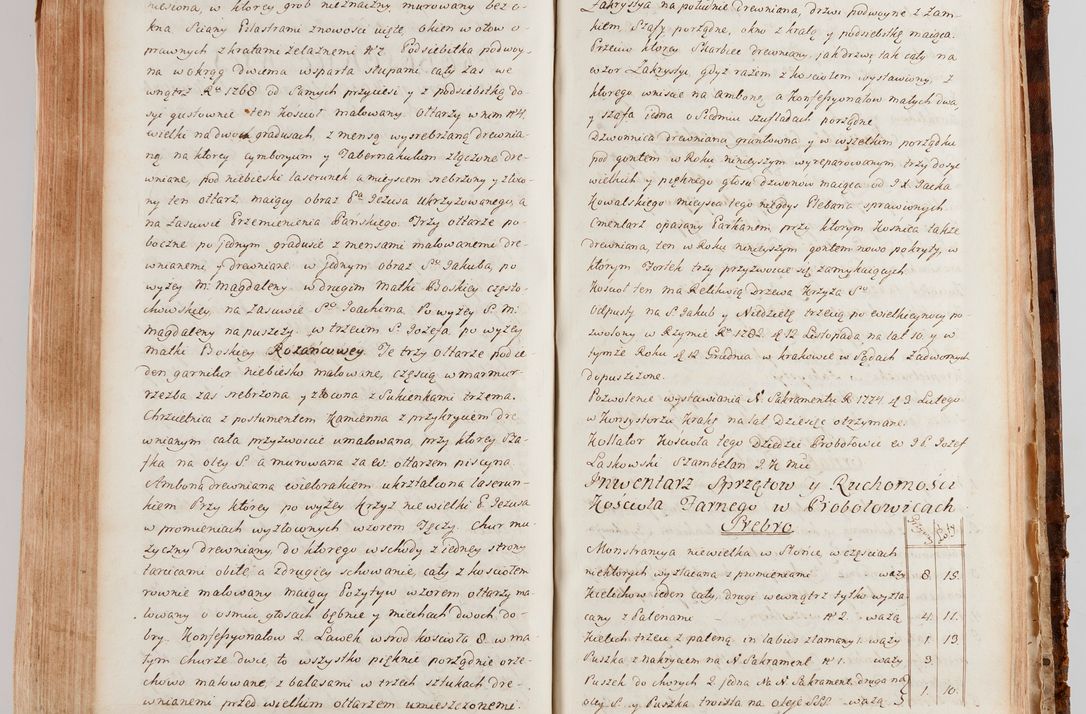 niesiona, w ktorey grób nieznaczny murowany bez o-
kna. Sciany Pilastrami znowości ujęte, okien w ołow o-
prawnych z kratami żelaznemi N° 7. Podsiebitka podwoy-
na w okrąg dwiema wsparta słupami cały zas we
wnątrz Rº 1768 od Samych przyciesi y z podsiebitką do-
syć gustownie ten kościoł malowany ołtarzy w nim N° 4.
wielki na dwóch gradusach, z mensą wysrebrzaną drewnia-
ną, na ktorey cymboryum y Tabernakulum złączone dre-
wniane, pod niebieski laserunek a mieyscem srebrzony y złoco-
ny ten ołtarz, maiący obraz Pa Jezusa Ukrzyżowanego, a
na zasuwie Przemienienia Pańskiego. Trzy ołtarze po-
boczne po jednym gradusie z mensami malowanemi dre-
wnianemi y drewniane w jednym obraz Sº Jakuba, po
wyżey M. Magdaleny w drugim Matki Boskiey często-
chowskiey, na zasuwie Sº Joachima. Powyżey S. M.
Magdaleny na puszczy w trzecim S. Jozefa, po wyżey
Matki Boskiey Rożańcowey. Te trzy ołtarze pod ie-
den garnitur niebiesko malowane, częscią w marmur-
rzezba zas srebrzona y złocona z Sukienkami trzema.
Chrzcielnica z postumentem Kamienna z przykryciem dre
wnianym cała przyzwoicie umalowana, przy ktorey Sza-
fka na oley S. a murowana za w. ołtarzem piscyna.
Ambona drewniana wielorakiem ukształcona laserun-
kiem Przy ktorey po wyżey krzyż nie wielki P. Jezusa
w promieniach wyzłoconych wzorem Tęczy. Chur mu-
zyczny drewniany, do ktorego wschody z iedney strony
tarcicami obite, a zdrugiey schowanie, cały z kosciołem
rownie malowany maiący Pozytyw wzorem ołtarzy ma-
lowany o osmiu głosach bębnie y miechach dwoch do-
bry. Konfessyonałow 2. Ławek wsród kościoła 8. w ma-
łym churze dwie, to wszystko pięknie porządnie orze-
chowo malowane, z balasami w trzech sztukach dre-
wnianemi przed wielkim ołtarzem umieszczonemi.
Zakrystya na południe drewniana, drzwi podwoyne z zam-
kiem Szafy porządne, okno z kratą y podsiebitkę maiąca.
Przeciw ktorey Skarbiec drewniany, jak drzwi tak cały na
wzor Zakrystyi, gdyż razem z kosciołem wystawiony, z
ktorego wniscie na ambonę, a konfessyonałow małych dwa,
y szafa jedna o Siedmiu szufladach porządne
Dzwonnica drewniana gruntowna y w wszelkim porządku
pod gontem w Roku ninieyszym wyreparowanym, trzy dosyć
wielkich y pięknego głosu dzwonow maiąca od I. X. Jacka
Kowalskiego mieysca tego niegdys Plebana sprawionych
Cmentarz opasany Parkanem, przy ktorym kosnica także
drewniana, ten w Roku ninieyszym gontem nowo pokryty, w
ktorym Fortek trzy przyzwoicie się zamykaiących
Kosciół ten ma Relikwią Drzewa Krzyża Sº
Odpusty na S. Jakub y Niedzielę trzecią po ewelkieynocy po-
zwolony w Rzymie Rº 1782. d. 12 Listopada na lat 10. y w
tymże Roku d. 12 Grudnia w krakowie w Sądach Zadwornych
dopuszczone.
Pozwolenie wystawiania N. Sakramentu R. 1774. d. 3 Lutego
w Konsystorzu Krakº na lat Dziesięc otrzymane.
Kollator Kościoła tego Dziedzic Probołowic W I. P. Jozef
Laskowski Szambelan J. K. Mci
Inwentarz Sprzętow y Ruchomości
Kościoła Farnego w Probołowicach
Srebro
Grzywny Łoty
Monstrancya niewielka w Słońce, w częsciach
niektorych wyzłacana z promieniami – waży 8. 15.
Kielichow ieden cały, drugi wewnątrz tylko wyzła-
cany z Patenami – N° 2. – ważą 4. 11.
Kielich trzeci z pateną in labus złamany 1. waży 1. 13
Puszka z nakryciem na N. Sakrament N° 1. – waży 3.
Puszek do chorych 2. jedna Na N. Sakrament, druga na
oley S. y Puszka troista na oleje SSS. ważą 1. 10.